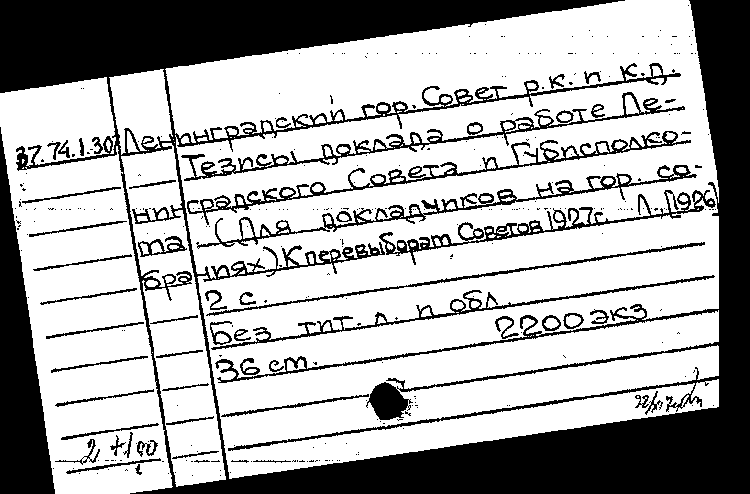 37.74.1.307 Ленинградский гор. Совет р.к. и к.д.
Тезисы доклада о работе Ле-
нинградского Совета и Губисполко-
ма (Для докладчиков на гор. со-
браниях) К перевыборам Советов 1927г. Л., [1926]
2 с.
Без тит. л. и обл.
36 cm. 2200 экз
2 +1